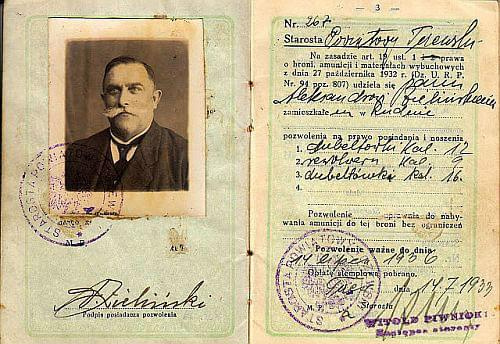 STAROSTA POWIATOWY
M. P.
A. Zieliński
Podpis posiadacza pozwolenia
— 3 —
Nr. 267
Starosta Powiatowy
Na zasadzie art. 18 ust. 1 prawa
o broni, amunicji i materiałach wybuchowych
z dnia 27 października 1932 r. (Dz. U. R. P.
Nr. 94 poz. 807) udziela się Panu
Aleksandrowi Zielińskiemu
zamieszkałemu w
pozwolenia na prawo posiadania i noszenia
1. dubeltówki kal. 12
2. rewolweru kal. 9
3. dubeltówki kal. 16.
4.
Pozwolenie uprawnia do naby-
wania amunicji do tej broni bez ograniczeń
Pozwolenie ważne do dnia
14 lipca 1936
Opłatę stemplową pobrano.
dnia 14.7.1933
M. P.
Starosta
STAROSTA POWIATOWY
WITOLD PIWNICKI